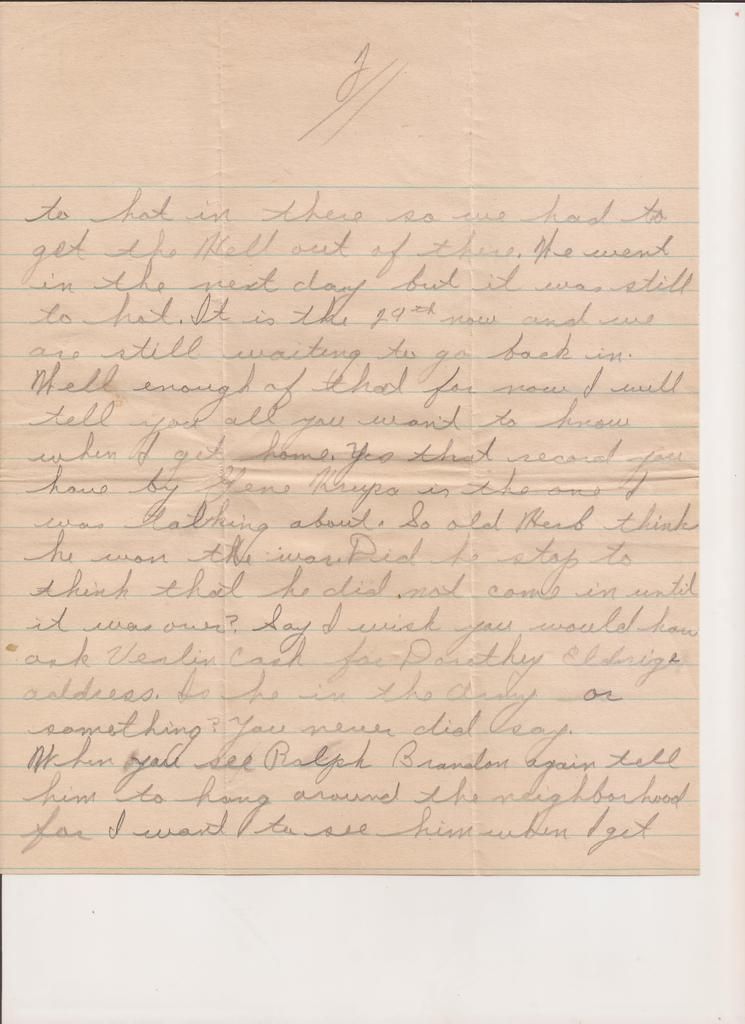 2//
to hot in there so we had to
get the Hell out of there. We went
in the next day but it was still
to hot. It is the 29th now and we
are still waiting to go back in.
Well enough of that for now I will
tell you all you want to know
when I get home. Yes that record you
have by Gene Krupa is the one I
was talking about. So old Herb think
he won the war. Did he stop to
think that he did not come in until
it was over? Say I wish you would have
ask Verlin Cash for Dorothy Eldrige
address. Is he in the army or
something? You never did say.
When you see Ralph Brandon again tell
him to hang around the neighborhood
for I want to see him when I get